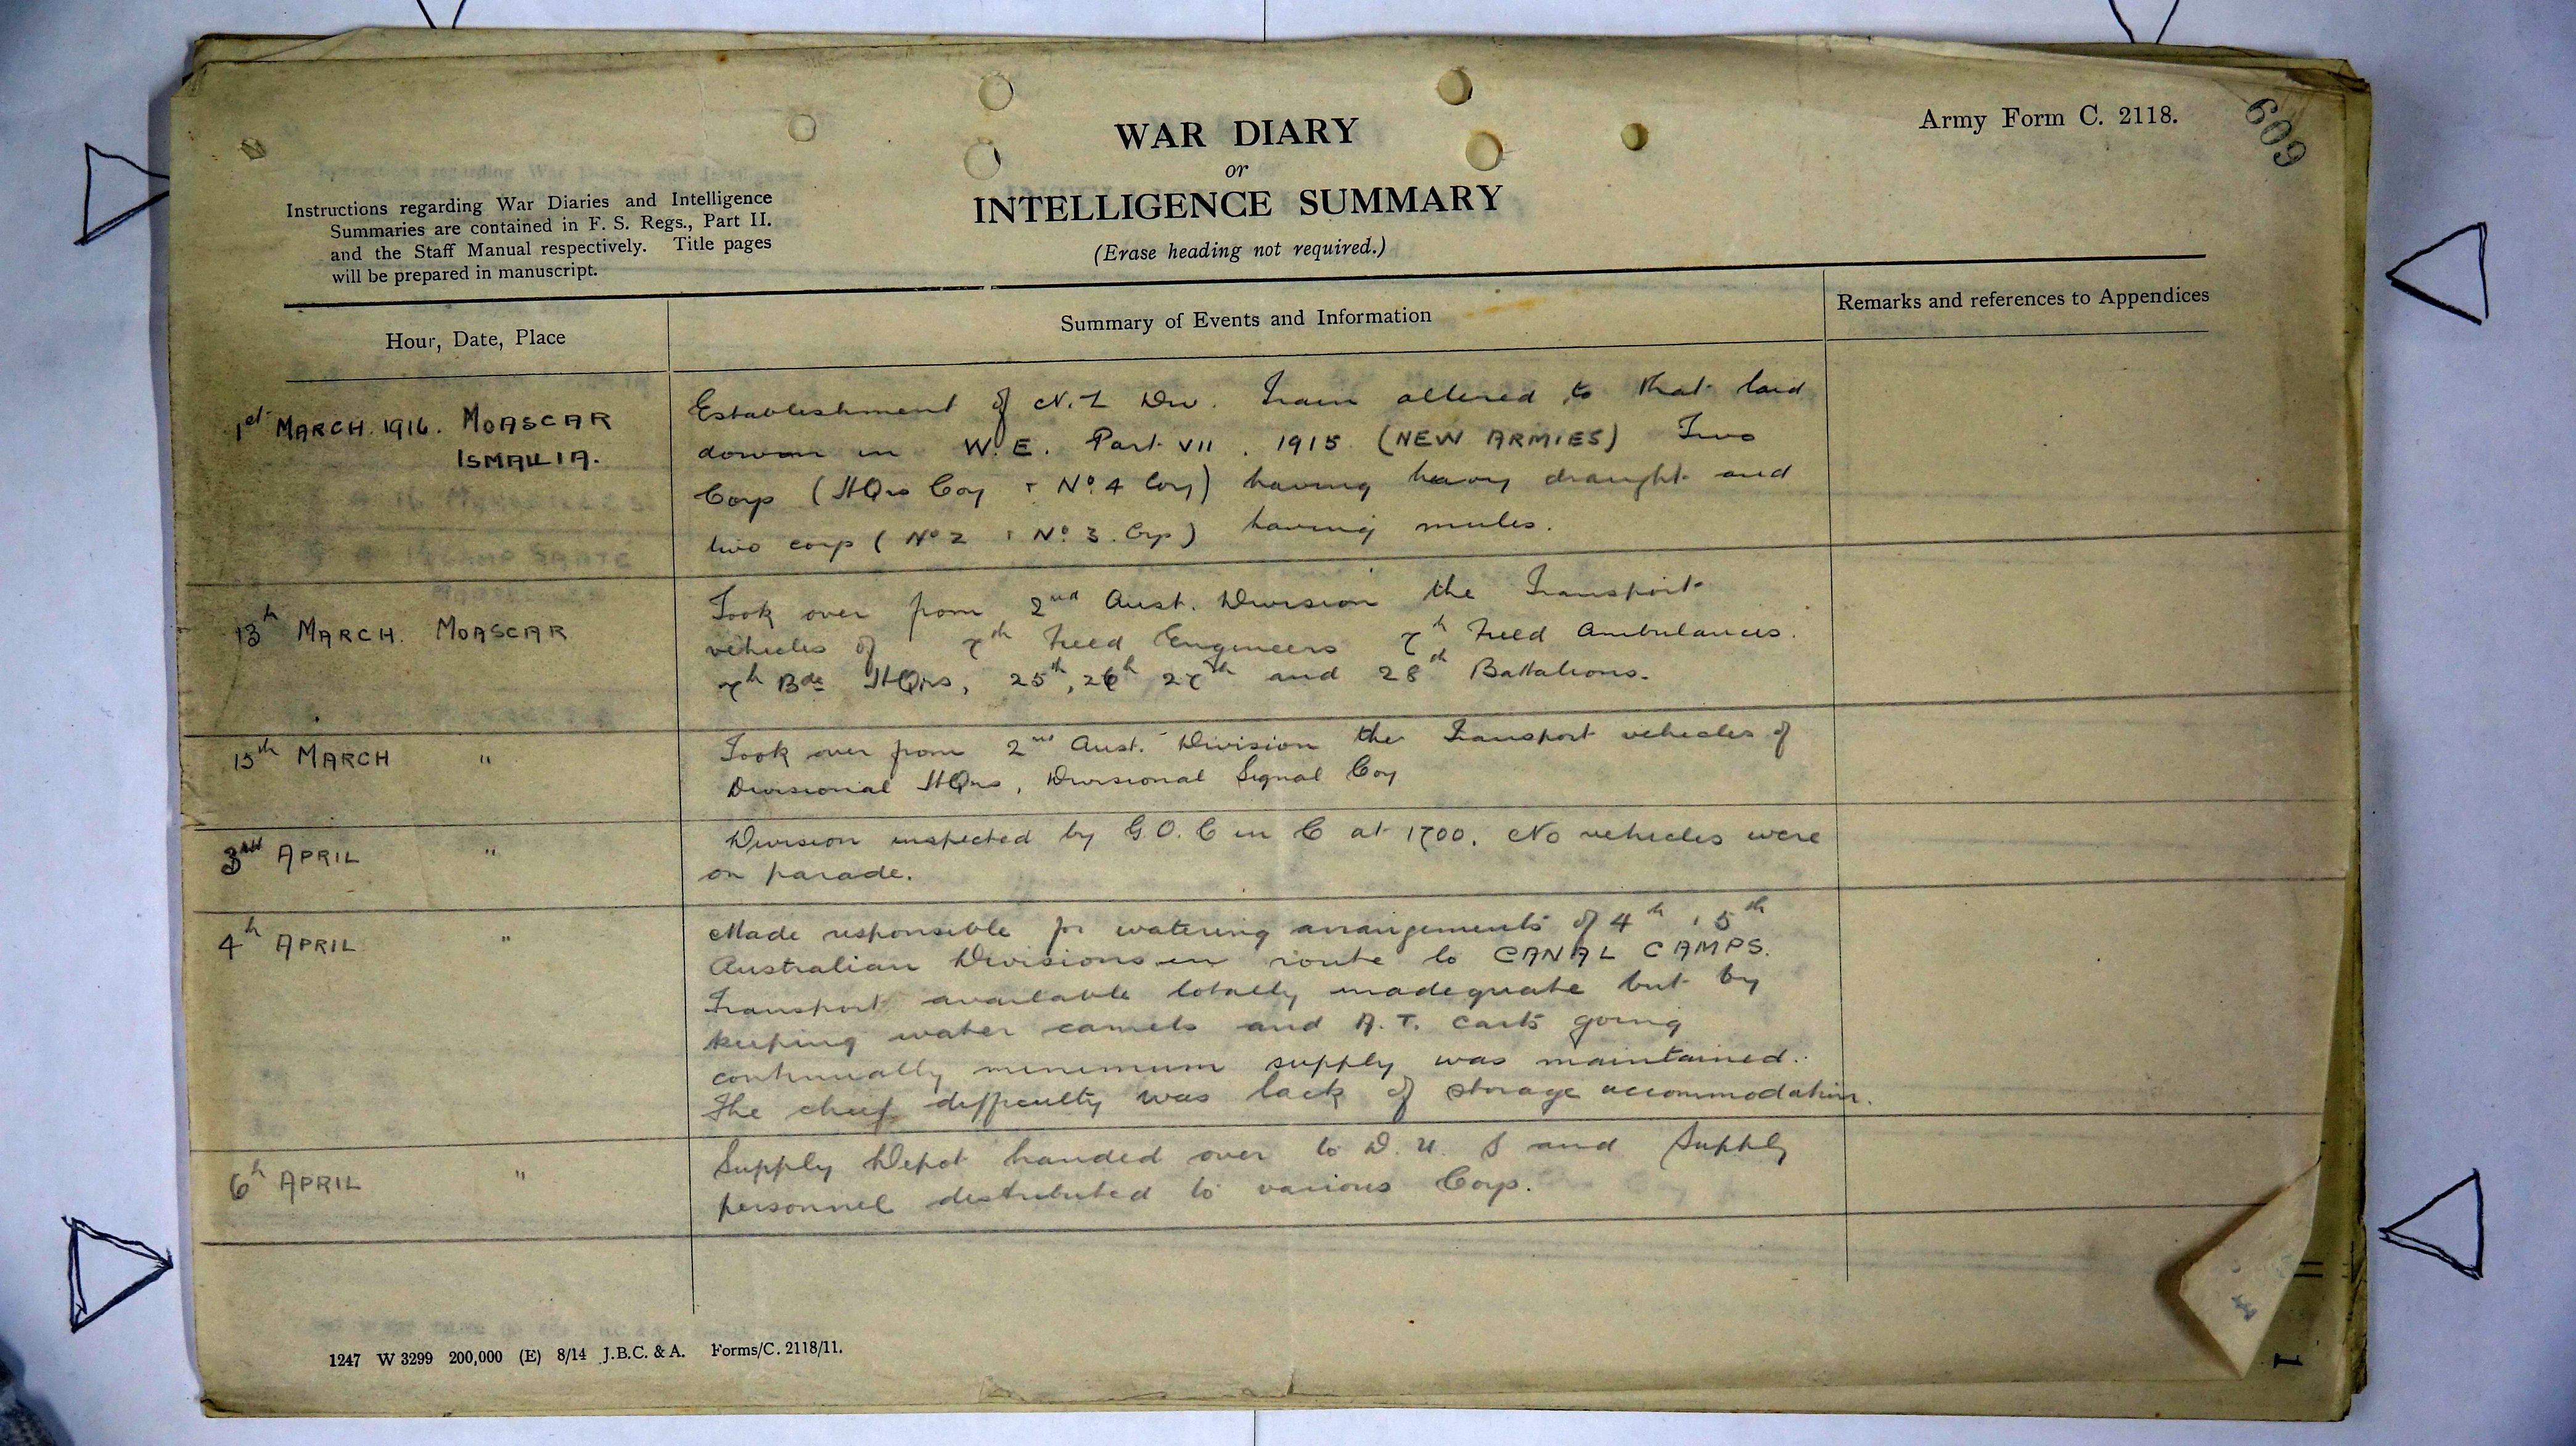 Army Form C. 2118.
609
WAR DIARY
or
INTELLIGENCE SUMMARY
(Erase heading not required.)
Instructions regarding War Diaries and Intelligence
Summaries are contained in F. S. Regs., Part II.
and the Staff Manual respectively. Title pages
will be prepared in manuscript.
Hour, Date, Place
Summary of Events and Information
Remarks and references to Appendices
1st MARCH. 1916. MOASCAR
ISMAILIA.
Establishment of N.Z Div. Train altered to that laid
down in W.E. Part VII. 1915 (NEW ARMIES) Two
Coys (HQrs Coy + No. 4 Coy) having heavy draught and
two coys (No 2 + No. 3. Coys) having mules.
13th MARCH. MOASCAR
Took over from 2nd Aust. Division the Transport
vehicles of 7th Field Engineers 7th Field Ambulances.
7th Bde HQrs, 25th, 26th 27th and 28th Battalions.
15th MARCH "
Took over from 2nd Aust. Division the Transport vehicles of
Divisional HQrs, Divisional Signal Coy
3rd APRIL "
Division inspected by G.O.C in C at 1700. No vehicles were
on parade.
4th APRIL "
Made responsible for watering arrangements of 4th + 5th
Australian Divisions en route to CANAL CAMPS.
Transport available totally inadequate but by
keeping water camels and A.T. carts going
continually minimum supply was maintained.
The chief difficulty was lack of storage accommodation.
6th APRIL "
Supply Depot handed over to D.U. S and Supply
personnel distributed to various Coys.
1247 W 3299 200,000 (E) 8/14 J.B.C. & A. Forms/C. 2118/11.